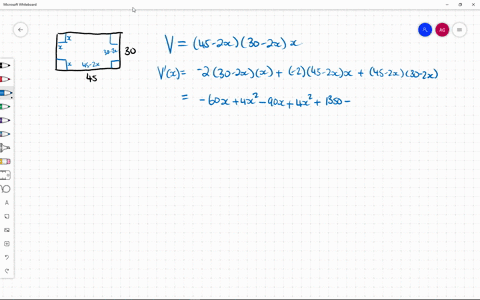 Microsoft Whiteboard
x
x
30-2x
30
x
45-2x
45
V = (45-2x)(30-2x)x
V'(x) = -2(30-2x)(x) + (-2)(45-2x)x + (45-2x)(30-2x)
= -60x+4x²-90x+4x²+1350-